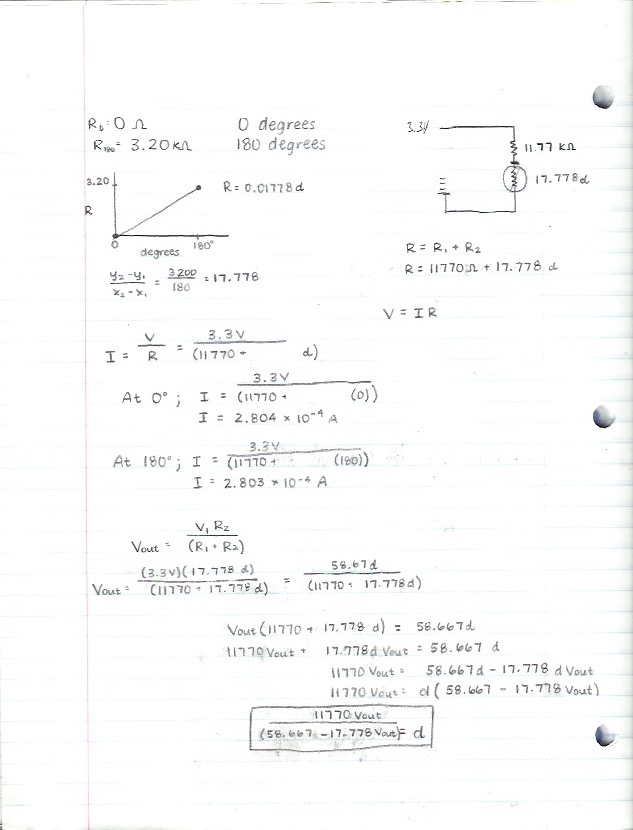 R₀ = 0 Ω 0 degrees
R₁₈₀ = 3.20 kΩ 180 degrees
3.3V
11.77 kΩ
17.778d
3.20
R
R = 0.01778d
0 180°
degrees
R = R₁ + R₂
R = 11770Ω + 17.778 d
(y₂-y₁)/(x₂-x₁) = 3200/180 = 17.778
V = IR
I = V/R = 3.3V/(11770 + d)
At 0° ; I = 3.3V/(11770 + (0))
I = 2.804 × 10⁻⁴ A
At 180° ; I = 3.3V/(11770 + (180))
I = 2.803 × 10⁻⁴ A
Vout = V₁ R₂/(R₁ + R₂)
Vout = (3.3V)(17.778 d)/(11770 + 17.778 d) = 58.67d/(11770 + 17.778d)
Vout (11770 + 17.778 d) = 58.667d
11770 Vout + 17.778d Vout = 58.667 d
11770 Vout = 58.667d - 17.778 d Vout
11770 Vout = d( 58.667 - 17.778 Vout)
11770 Vout/(58.667 - 17.778 Vout) = d